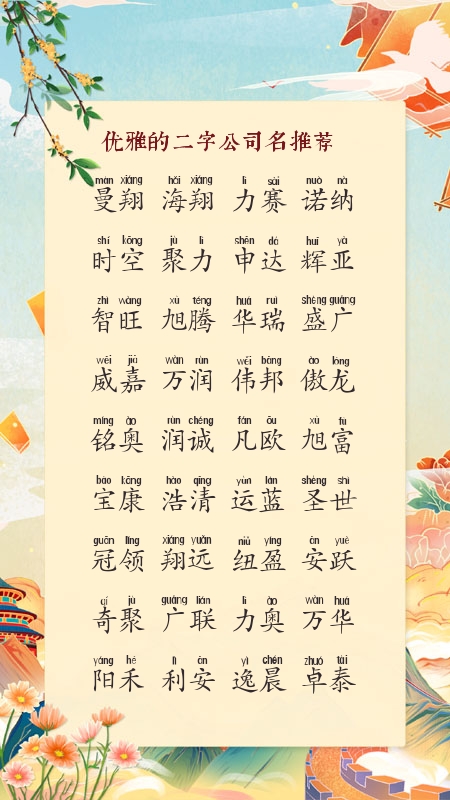 优雅的二字公司名推荐
màn xiáng hǎi xiáng lì sài nuò nà
曼翔 海翔 力赛 诺纳
shí kōng jù lì shēn dá huī yà
时空 聚力 申达 辉亚
zhì wàng xù téng huá ruì shèng guǎng
智旺 旭腾 华瑞 盛广
wēi jiā wàn rùn wěi bāng ào lóng
威嘉 万润 伟邦 傲龙
míng ào rùn chéng fán ōu xù fù
铭奥 润诚 凡欧 旭富
bǎo kāng hào qīng yùn lán shèng shì
宝康 浩清 运蓝 圣世
guān lǐng xiáng yuǎn niǔ yíng ān yuè
冠领 翔远 纽盈 安跃
qí jù guǎng lián lì ào wàn huá
奇聚 广联 力奥 万华
yáng hé lì ān yì chén zhuó tài
阳禾 利安 逸晨 卓泰